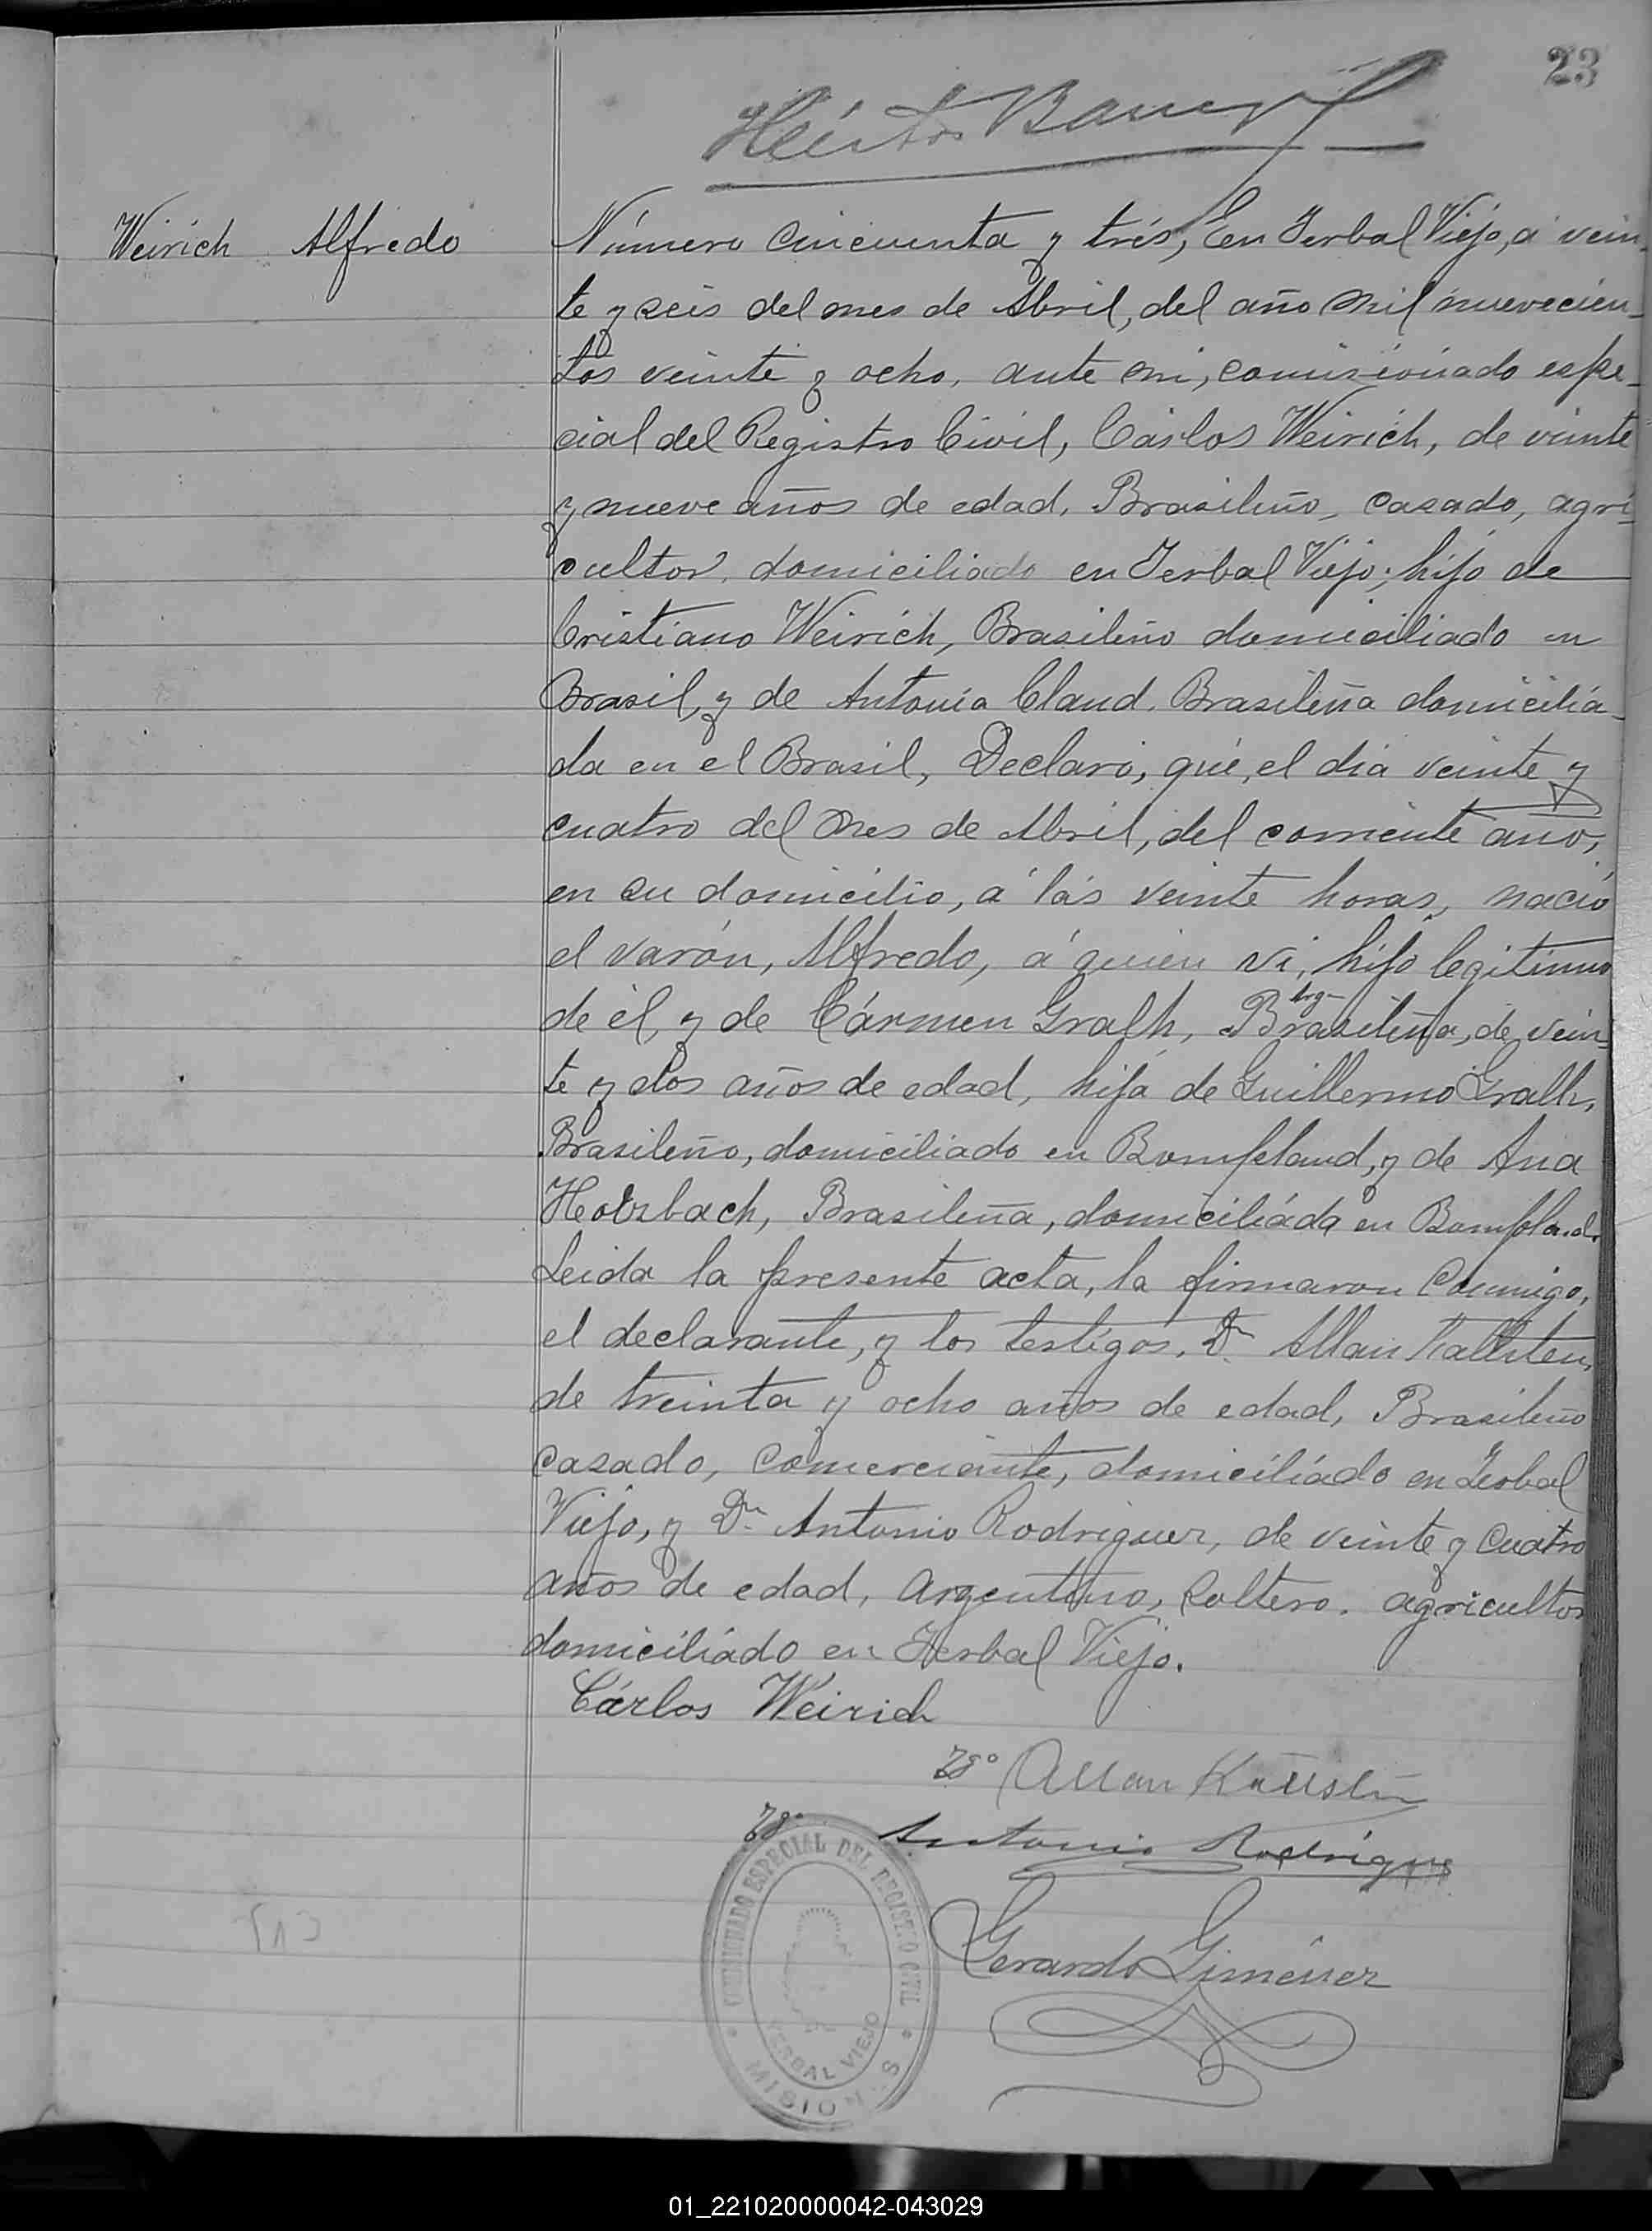 23
Weirich Alfredo
Número cincuenta y trés, En Yerbal Viéjo, á vein-
te y seis del mes de Abril, del año mil nuevecien-
tos veinte y ocho, ante mi, comisionado espe-
cial del Registro Civil, Cárlos Weirich, de veinte
y nueve años de edad, Brasileño, casado, agri-
cultor, domiciliado en Yerbal Viejo; hijo de
Cristiano Weirich, Brasileño domiciliado en
Brasil, y de Antonia Claud, Brasileña domicilia-
da en el Brasil, Declaró, qué, el dia veinte y
cuatro del mes de Abril, del corriente año,
en su domicilio, á lás veinte horas, nació
el varón, Alfredo, á quien ví, hijo legitimo
de él, y de Cármen Gralh, Brasileña, de vein-
Arg-
te y dos años de edad, hija de Guillermo Gralh,
Brasileño, domiciliado en Bompland, y de Ana
Brasileña, domiciliáda en Bompland.
Leida la presente acta, la firmaron conmigo,
el declarante, y los testigos, Dn Allan
de treinta y ocho años de edad, Brasileño
casado, comerciante, domiciliádo en Yerbal
Viejo, y Dn Antonio Rodriguez, de veinte y cuatro
años de edad, Argentino, soltero, agricultor
domiciliádo en Yerbal Viejo.
Cárlos Weirich
Tgo Allan
Tgo Antonio Rodrigues
Gerardo Giménez
COMISIONADO ESPECIAL DEL REGISTRO CIVIL
YERBAL VIEJO
MISIONES
01_221020000042-043029